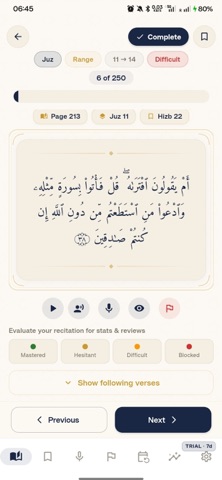 06:45
80%
Complete
Juz
Range
11 → 14
Difficult
6 of 250
Page 213
Juz 11
Hizb 22
أَمْ يَقُولُونَ ٱفْتَرَىٰهُ ۖ قُلْ فَأْتُوا۟ بِسُورَةٍ مِّثْلِهِۦ
وَٱدْعُوا۟ مَنِ ٱسْتَطَعْتُم مِّن دُونِ ٱللَّهِ إِن
كُنتُمْ صَـٰدِقِينَ ٣٨
Evaluate your recitation for stats & reviews
Mastered
Hesitant
Difficult
Blocked
Show following verses
Previous
Next
TRIAL · 7d